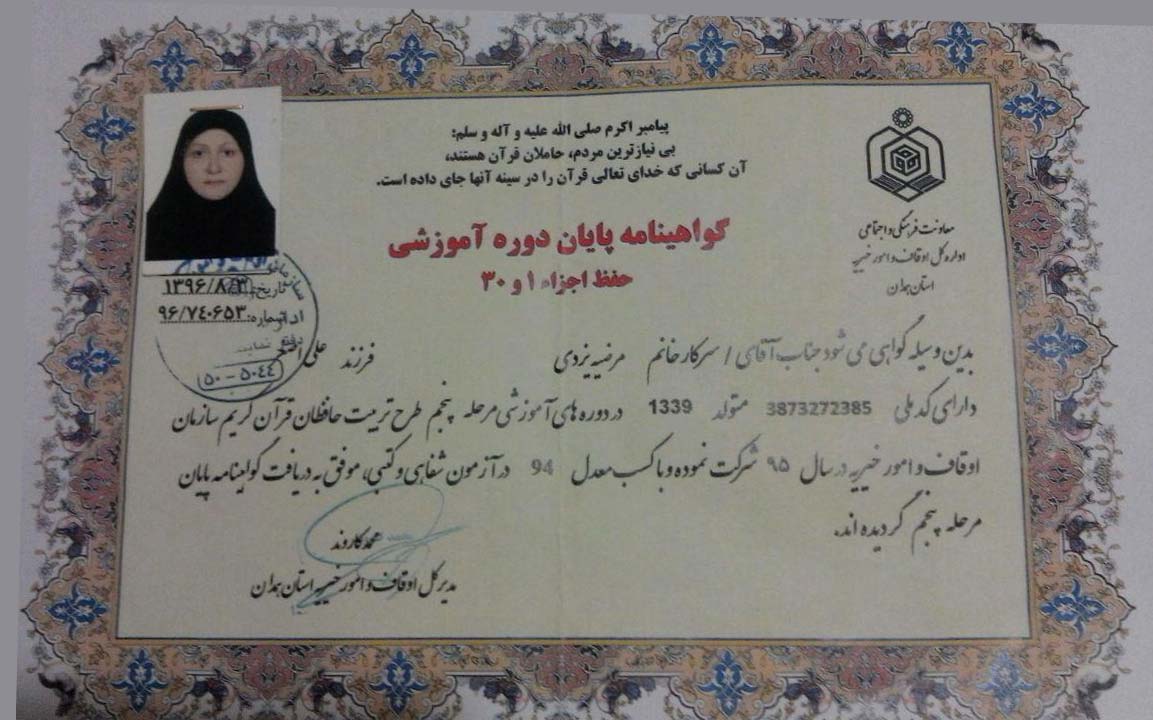 پیامبر اکرم صلی الله علیه و آله و سلم:
بی نیازترین مردم، حاملان قرآن هستند،
آن کسانی که خدای تعالی قرآن را در سینه آنها جای داده است.
گواهینامه پایان دوره آموزشی
حفظ اجزاء ۱ و ۳۰
معاونت فرهنگی و اجتماعی
اداره کل اوقاف و امور خیریه
استان همدان
تاریخ: ۱۳۹۶/۸/۳
شماره: ۹۶/۷۴۰۶۵۳
۵۰۴۴ - ۵۰
بدین وسیله گواهی می شود جناب آقای / سرکار خانم مرضیه یزدی فرزند علی اصغر
دارای کد ملی 3873272385 متولد 1339 در دوره های آموزشی مرحله پنجم طرح تربیت حافظان قرآن کریم سازمان
اوقاف و امور خیریه در سال ۹۵ شرکت نموده و با کسب معدل 94 در آزمون شفاهی و کتبی، موفق به دریافت گواهینامه پایان
مرحله پنجم گردیده اند.
محمد کاروند
مدیر کل اوقاف و امور خیریه استان همدان